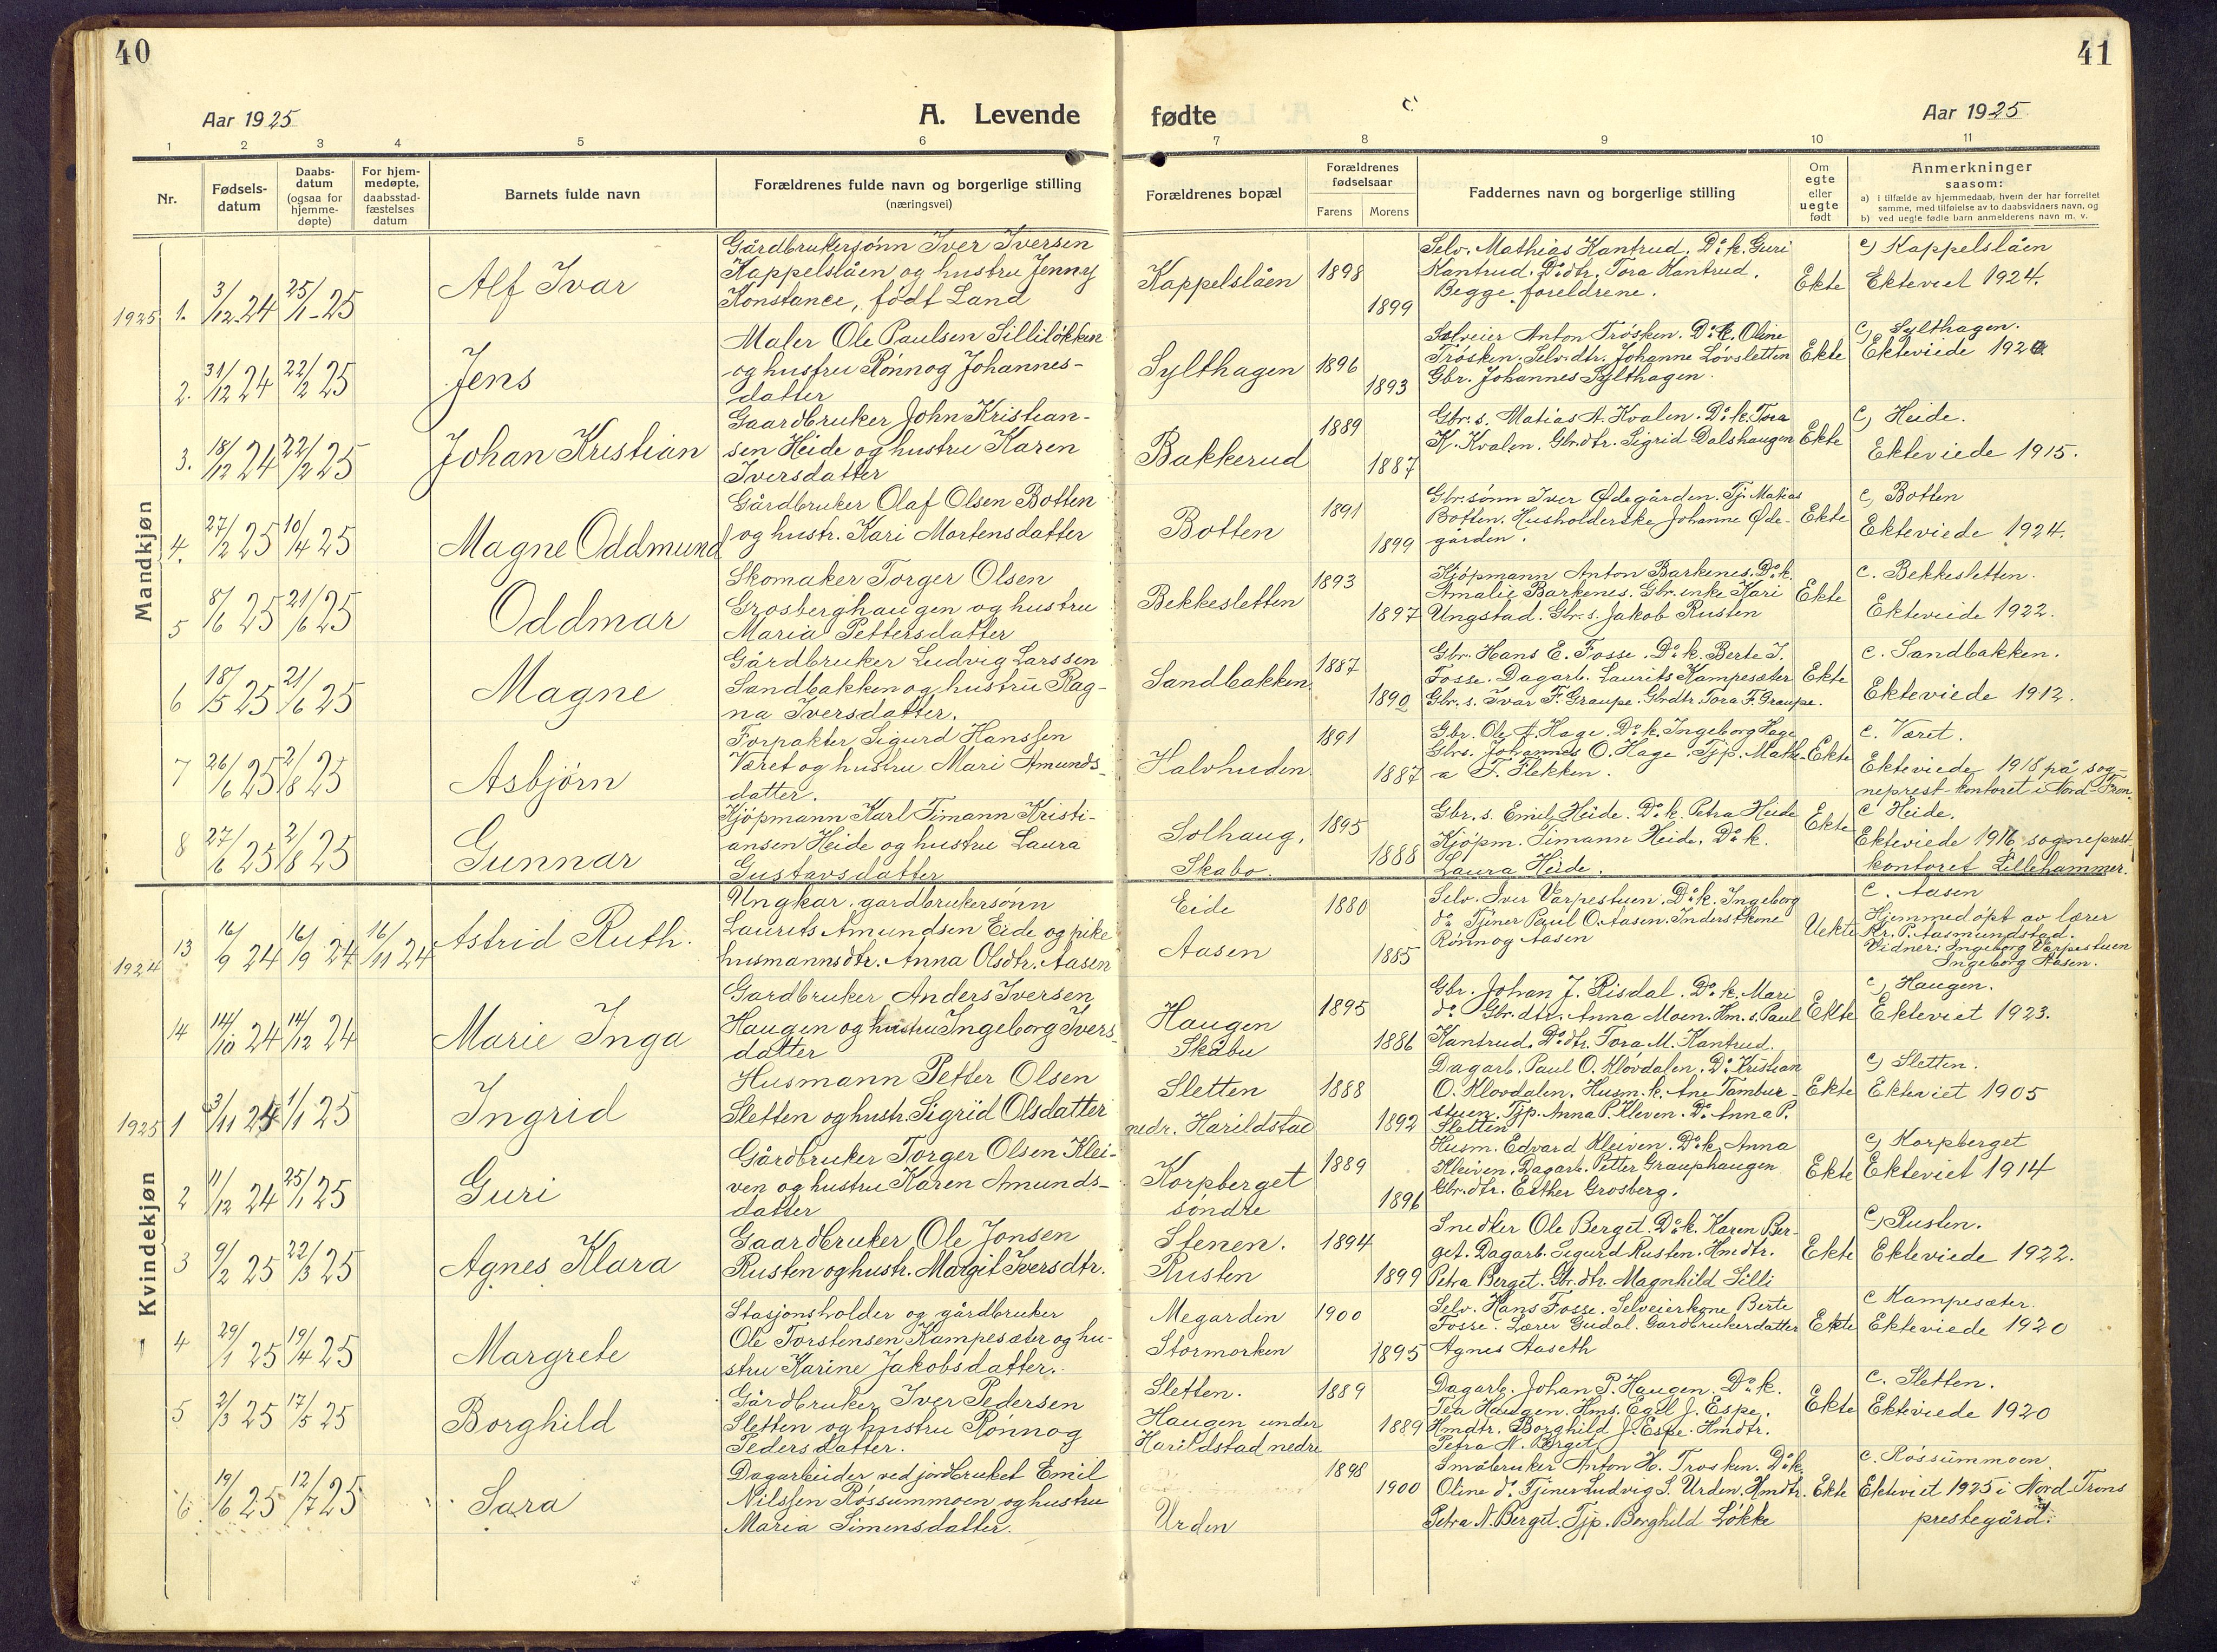 40
41
Aar 1925
A. Levende
fødte
Aar 1925
1 2 3 4 5 6
7 8 9 10 11
Nr.
Fødsels-
datum
Daabs-
datum
(ogsaa for
hjemme-
døpte)
For hjem-
medøpte,
daabsstad-
fæstelses
datum
Barnets fulde navn
Forældrenes fulde navn og borgerlige stilling
(næringsvei)
Forældrenes bopæl
Forældrenes
fødselsaar
Farens
Morens
Faddernes navn og borgerlige stilling
Om
egte
eller
uegte
født
Anmerkninger
saasom:
a) i tilfælde av hjemmedaab, hvem der har forrettet
samme, med tilføielse av to daabsvidners navn, og
b) ved uegte fødte barn anmelderens navn m. v.
Mandkjøn
1925 1. 3/12-24 25/1-25
Alf Ivar
Gårdbrukersønn Iver Iversen
Kappelslåen og hustru Jenny
Konstance, født Land
Kappelslåen
1898
1899
Selv. Mathias Kantrud. Do. k. Guri
Kantrud. Do. dtr. Tora Kantrud.
Begge foreldrene.
Ekte
c) Kappelslåen
Ekteviet 1924.
2. 31/12 24 22/2 25
Jens
Maler Ole Paulsen Silliløkken
og hustru Rønnog Johannes-
datter
Sylthagen
1896
1893
Selveier Anton Trøsken. Do. k. Oline
Trøsken. Selv.dtr. Johanne Løvsletten
Gbr. Johannes Sylthagen.
Ekte
c) Sylthagen.
Ekteviede
3. 18/12 24 22/2 25
Johan Kristian
Gaardbruker John Kristian-
sen Heide og hustru Karen
Iversdatter
Bakkerud
1889
1887
Gbr. s. Matias A. Kvalen. Do. k. Tora
K. Kvalen. Gbrdtr. Sigrid Dalshaugen
Ekte
c) Heide.
Ekteviede 1915.
4. 27/2 25 10/4 25
Magne Oddmund
Gårdbruker Olaf Olsen Botten
og hustr. Kari Mortensdatter
Botten
1891
1899
Gbr.sønn Iver Ødegården. Tj. Matias
Botten. Husholderske Johanne Øde-
gården.
Ekte
c) Botten
Ekteviede 1924.
5 8/6 25 21/6 25
Oddmar
Skomaker Torger Olsen
Grosberghaugen og hustru
Maria Pettersdatter
Bekkesletten
1893
1897
Kjøpmann Anton Barkenes. Do. k.
Amalie Barkenes. Gbr. enke Kari
Ungstad. Gbr. s. Jakob Rusten
Ekte
c. Bekkesletten.
Ekteviede 1922.
6 18/5 25 21/6 25
Magne
Gårdbruker Ludvig Larssen
Sandbakken og hustru Rag-
na Iversdatter.
Sandbakken
1887
1890
Gbr. Hans E. Fosse. Do. k. Berte I.
Fosse. Dagarb. Laurits Kampesæter
Gbr. s. Ivar F. Graupe. Gbrdtr. Tora F. Graupe.
Ekte
c. Sandbakken.
Ekteviede 1912.
7 26/6 25 2/8 25
Asbjørn
Forpakter Sigurd Hanssen
Været og hustru Mari Amunds-
datter.
Halvhuden
1891
1887
Gbr. Ole A. Hage. Do. k. Ingeborg Hage
Gbrs. Johannes O. Hage. Tjp. Mathe-
a T. Flekken.
Ekte
c. Været.
Ekteviede 1918 på sog-
neprest-kontoret i Nord-Fron
8 27/6 25 2/8 25
Gunnar
Kjøpmann Karl Timann Kristi-
ansen Heide og hustru Laura
Gustavsdatter
Solhaug,
Skabo.
1895
1888
Gbr. s. Emil Heide. Do. k. Petra Heide
Kjøpm. Timann Heide. Do. k.
Laura Heide.
Ekte
c Heide.
Ekteviede 1916 sogneprest-
kontoret Lillehammer.
Kvindekjøn
1924 13 16/9 24 16/9 24 16/11 24
Astrid Ruth.
Ungkar. gardbrukersønn
Laurits Amundsen Eide og pike
husmannsdtr. Anna Olsdtr. Aasen
Eide
Aasen
1880
1885
Selv. Iver Varpestuen. Do. k. Ingeborg
do. Tjener Paul O. Aasen. Inderstkone
Rønnog Aasen
Uekte
c. Aasen
Hjemmedøpt av lærer
Kr. P. Aasmundstad.
Vidner: Ingeborg Varpestuen
Ingeborg Aasen.
14 14/10 24 14/12 24
Marie Inga
Gardbruker Anders Iversen
Haugen og hustru Ingeborg Ivers-
datter
Haugen
Skåbu
1895
1886
Gbr. Johan J. Risdal. Do. k. Mari
do. Gbr. dtr. Anna Moen. Hm. s. Paul
Kantrud. Do. dtr. Tora M. Kantrud.
Ekte
c) Haugen.
Ekteviet 1923.
1925 1 3/11 24 1/1 25
Ingrid
Husmann Petter Olsen
Sletten og hustr. Sigrid Olsdatter
Sletten
nedr. Harildstad
1888
1892
Dagarb. Paul O. Kløvdalen. Do. Kristian
O. Kløvdalen. Husm. k. Ane Tambur-
stuen. Tjp. Anna P. Kleven. Do. Anna P.
Sletten
Ekte
c) Sletten.
Ekteviet 1905
2 11/12 24 25/1 25
Guri
Gårdbruker Torger Olsen Klei-
ven og hustru Karen Amunds-
datter
Korpberget
søndre
1889
1896
Husm. Edvard Kleiven. Do. k. Anna
Kleiven. Dagarb. Petter Grauphaugen
Gbr. dtr. Esther Grosberg.
Ekte
c) Korpberget
Ekteviet 1914
3 9/2 25 22/3 25
Agnes Klara
Gaardbruker Ole Jonsen
Rusten og hustr. Margit Iversdtr.
Stenen.
Rusten
1894
1899
Snedker Ole Berget. Do. k. Karen Ber-
get. Dagarb. Sigurd Rusten. Hmdtr.
Petra Berget. Gbr. dtr. Magnhild Silli
Ekte
c) Rusten.
Ekteviede 1922.
4 29/1 25 19/4 25
Margrete
Stasjonsholder og gårdbruker
Ole Torstensen Kampesæter og hu-
stru Karine Jakobsdatter.
Megarden
Stormorken
1900
1895
Selv. Hans Fosse. Selveierkone Berte
Fosse. Lærer Gudal. Gardbrukerdatter
Agnes Aaseth
Ekte
c Kampesæter.
Ekteviede 1920
5 2/3 25 17/5 25
Borghild
Gårdbruker Iver Pedersen
Sletten og hustru Rønnog
Pedersdatter.
Sletten.
Haugen under
Harildstad nedre
1889
1889
Dagarb. Johan P. Haugen. Do. k.
Tea Haugen. Hms. Egil J. Espe.
Hmdtr. Borghild J. Espe. Hmdtr.
Petra N. Berget
Ekte
c. Sletten.
Ekteviede 1920
6. 19/6 25 12/7 25
Sara
Dagarbeider ved jordbruket Emil
Nilssen Røssummoen og hustru
Maria Simensdatter.
Urden
1898
1900
Småbruker Anton H. Trosken. Do. k.
Oline do. Tjener Ludvig S. Urden. Hmdtr.
Petra N. Berget. Tjp. Borghild Løkke
Ekte
c. Røssummoen.
Ekteviet 1925 i Nord-Frons
prestegård.